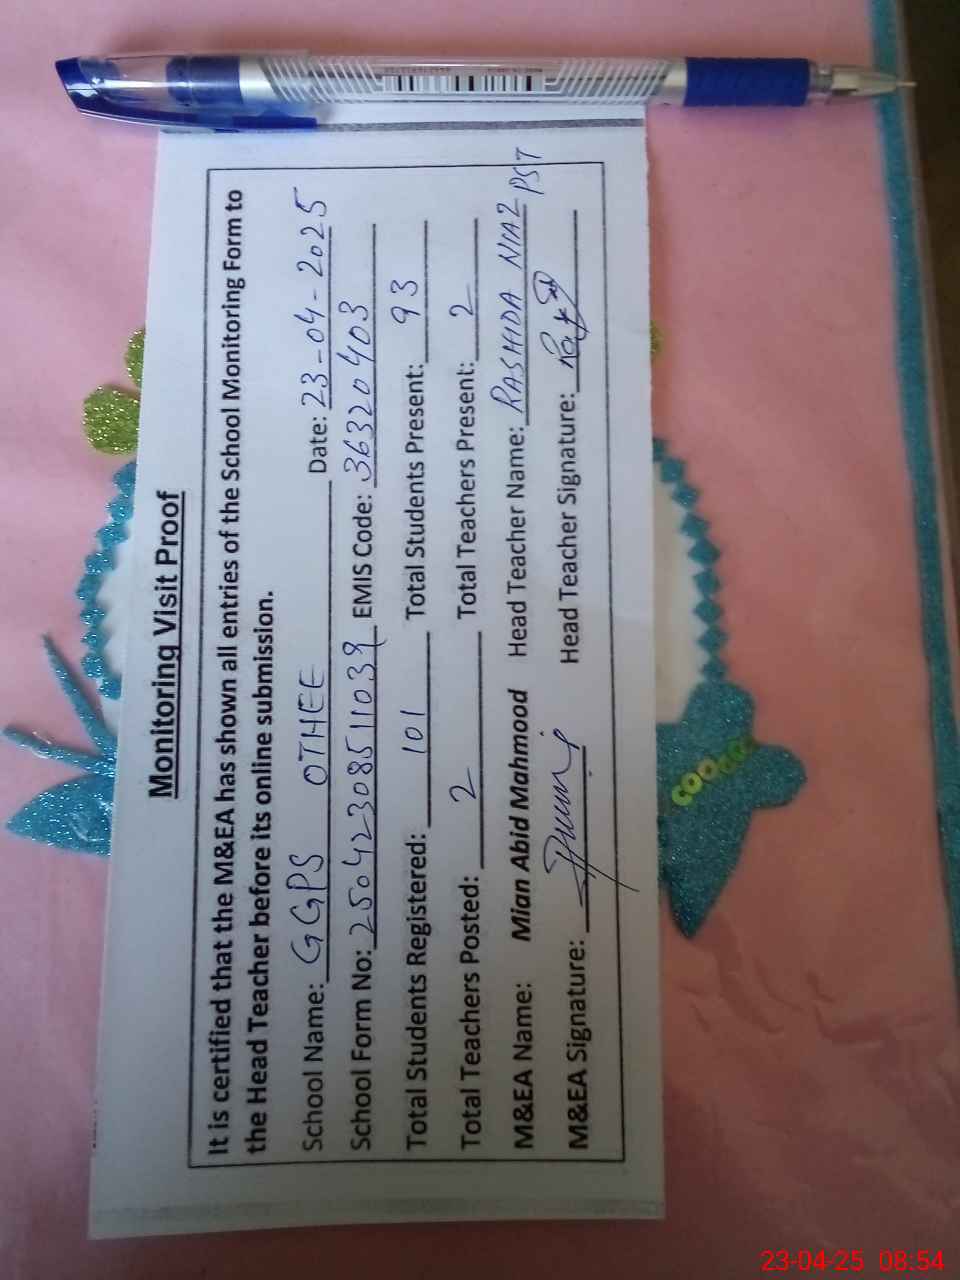 Monitoring Visit Proof
It is certified that the M&EA has shown all entries of the School Monitoring Form to
the Head Teacher before its online submission.
School Name: GGPS OTHEE Date: 23-04-2025
School Form No: 25042308511039 EMIS Code: 36320403
Total Students Registered: 101 Total Students Present: 93
Total Teachers Posted: 2 Total Teachers Present: 2
M&EA Name: Mian Abid Mahmood Head Teacher Name: RASHIDA NIAZ PST
M&EA Signature: Head Teacher Signature:
23-04-25 08:54